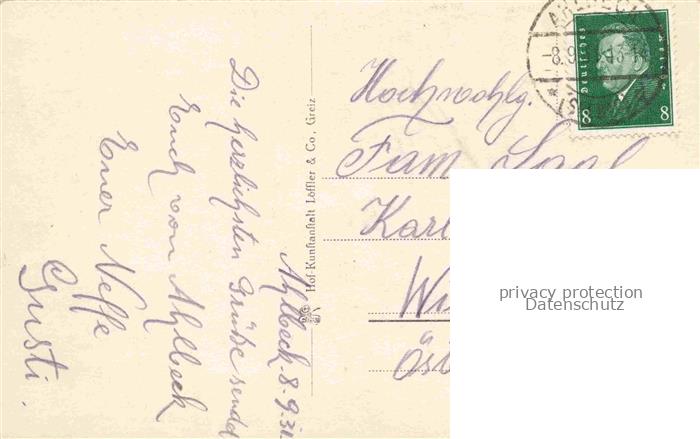 Ahlbeck 8.9.31
Die herzlichsten Grüße sendet
Euch von Ahlbeck
Euer Neffe
Gusti.
Hof-Kunstanstalt Löffler & Co., Greiz
AHLBECK
-8.9.
Deutsches Reich
8 8
Hochwohlg.
Fam.
Karl
privacy protection
Datenschutz